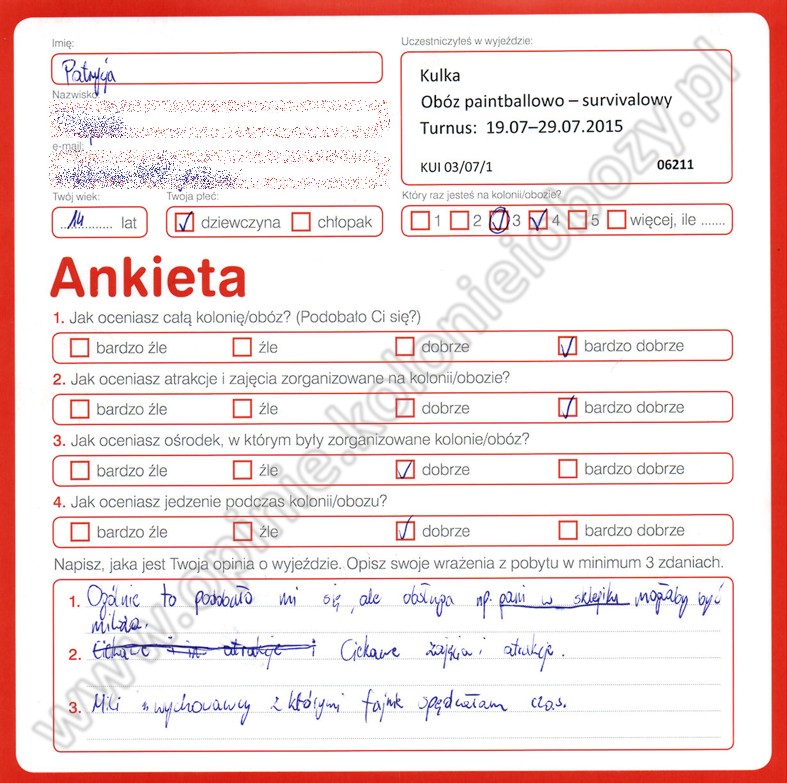 Imię:
Patrycja
Nazwisko:
e-mail:
Twój wiek:
..14......... lat
Twoja płeć:
dziewczyna chłopak
Uczestniczyłeś w wyjeździe:
Kulka
Obóz paintballowo – survivalowy
Turnus: 19.07–29.07.2015
KUI 03/07/1 06211
Który raz jesteś na kolonii/obozie?
1 2 3 4 5 więcej, ile .......
Ankieta
1. Jak oceniasz całą kolonię/obóz? (Podobało Ci się?)
bardzo źle źle dobrze bardzo dobrze
2. Jak oceniasz atrakcje i zajęcia zorganizowane na kolonii/obozie?
bardzo źle źle dobrze bardzo dobrze
3. Jak oceniasz ośrodek, w którym były zorganizowane kolonie/obóz?
bardzo źle źle dobrze bardzo dobrze
4. Jak oceniasz jedzenie podczas kolonii/obozu?
bardzo źle źle dobrze bardzo dobrze
Napisz, jaka jest Twoja opinia o wyjeździe. Opisz swoje wrażenia z pobytu w minimum 3 zdaniach.
1. Ogólnie to podobało mi się, ale obsługa np. pani w sklepiku mogłaby być
milsza.
2. Ciekawe zajęcia i atrakcje.
3. Mili wychowawcy z którymi fajnie spędzałam czas.
www.opinie.kolonieiobozy.pl